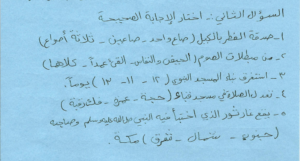 السؤال الثاني :- اختار الإجابة الصحيحة
١- صدقة الفطر بالكيل (صاع واحد - صاعين - ثلاثة أصواع)
٢- من مبطلات الصوم (الحيض والنفاس - القئ عمداً - كلاهما)
٣- استغرق بناء المسجد النبوي (١٢ - ١١ - ١٣) يوماً.
٤- تعدل الصلاة في مسجد قباء (حجة - عمرة -
٥- يقع غار ثور الذي اختبأ فيه النبي صلى الله عليه وسلم وصاحبه
(جنوب - شمال - شرق) مكة.